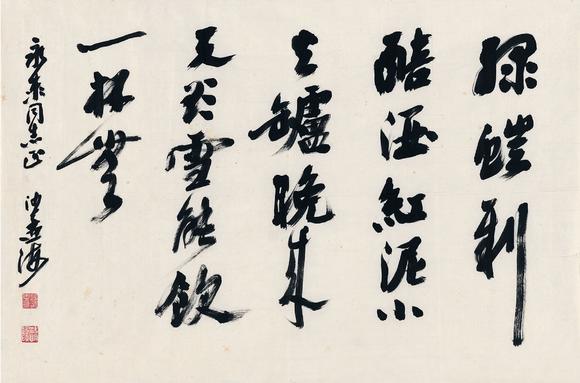 綠螘新
醅酒紅泥小
火鑪晚來
天欲雪能飲
一杯無
永 同志正 沙孟海